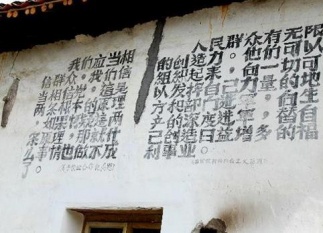 我们应当相
信群众，我们应当相信
党，这是
两条根本的原理
。如果怀疑这两
条原理，那就什
么事情也做不成
了。
人民群众有无限
的创造力。他们可以
组织起来，向一切可
以发挥自己力量的地
方和部门进军，向生
产的深度和广度进军，替自
己创造日益增多的福
利事业。